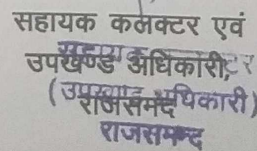 सहायक कलक्टर एवं
उपखण्ड अधिकारी,
(उपखण्ड अधिकारी)
राजसमंद
राजसमन्द